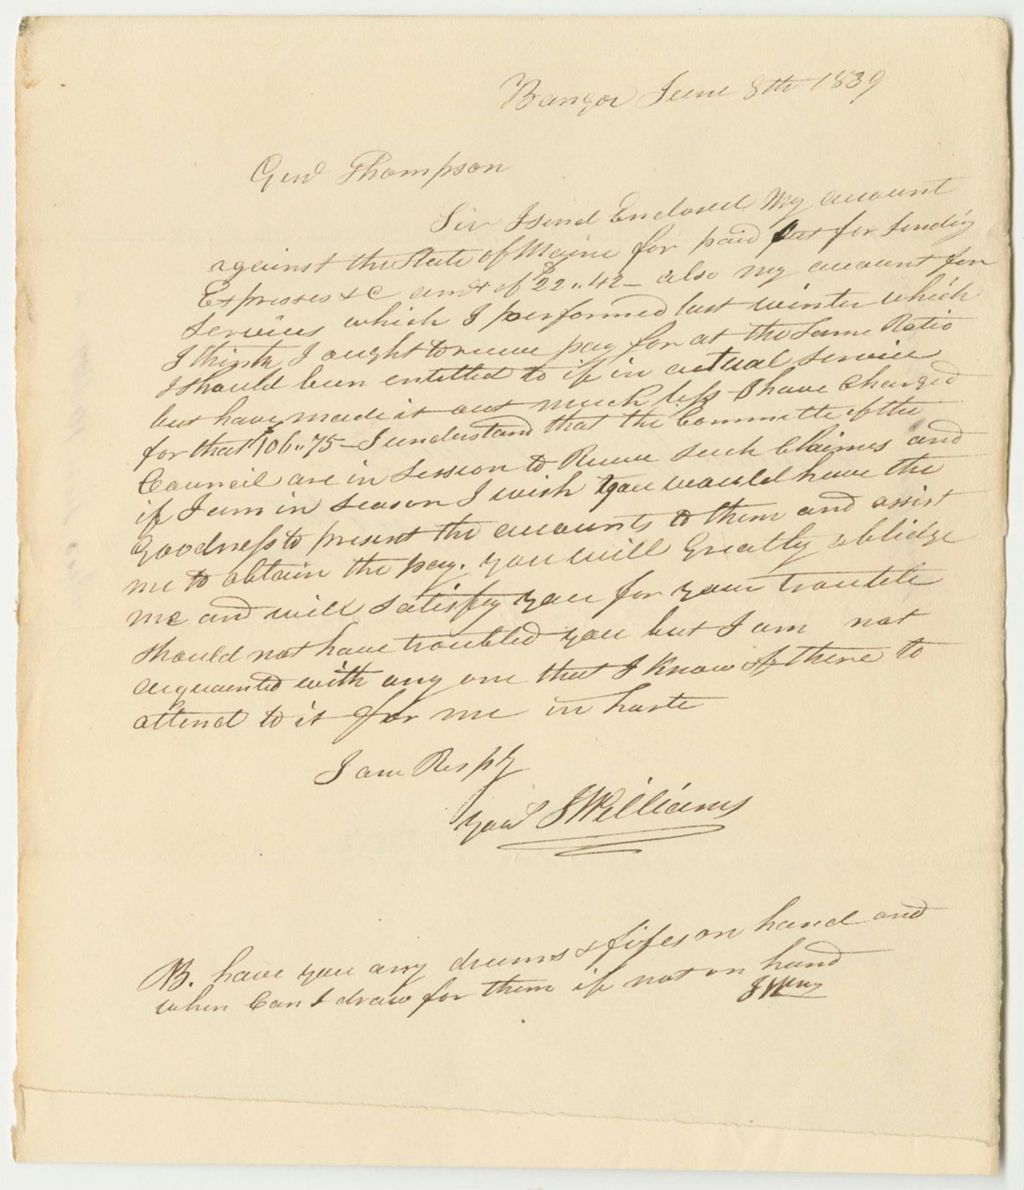 Bangor June 8th 1839
Genl Thompson
Sir I send Enclosed My account
against the State of Maine for paid out for Sending
Expresses &c amt of $22..42 - also my account for
Services which I performed last winter which
I think I ought to receive pay for at the Same Ratio
I should been entitled to if in actual Service
but have made it out much less I have Charged
for that $106..75 - I understand that the Committe of the
Council are in Session to Receive such Claimes and
if I am in Season I wish you would have the
Goodness to present the accounts to them and assist
me to obtain the pay. you will Greatly oblidge
me and will satisfy you for your trouble
should not have troubled you but I am not
acquainted with any one that I know of there to
attend to it for me in haste
I am Respy
Your J Williams
NB. have you any drums & fifes on hand and
when Can I draw for them if not on hand